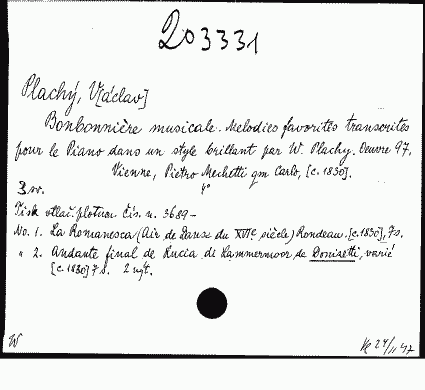 203331
Plachý, V[áclav]
Bonbonnière musicale. Melodies favorites transcrites
pour le Piano dans un style brillant par W. Plachy. Oeuvre 97.
Vienne, Pietro Mechetti qm Carlo, [c. 1830].
3 sv. 4°
Tisk vtlač. plotnou čís. n. 3689-
No. 1. La Romanesca (Air de Danse du XVIe siècle) Rondeau. [c. 1830], 7 s.
" 2. Andante final de Lucia di Lammermoor de Donizetti, varié
[c. 1830] 7 s. 2 výt.
W
24/II 47